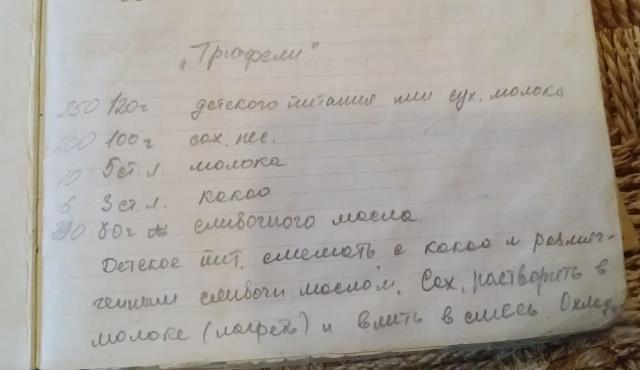 „Трюфели"
250 120г детского питания или сух. молока
200 100г сах. пес.
10 5ст.л. молока
6 3ст.л. какао
80г сливочного масла.
Детское пит. смешать с какао и размяг-
ченным сливочн. маслом. Сах. растворить в
молоке (нагреть) и влить в смесь.